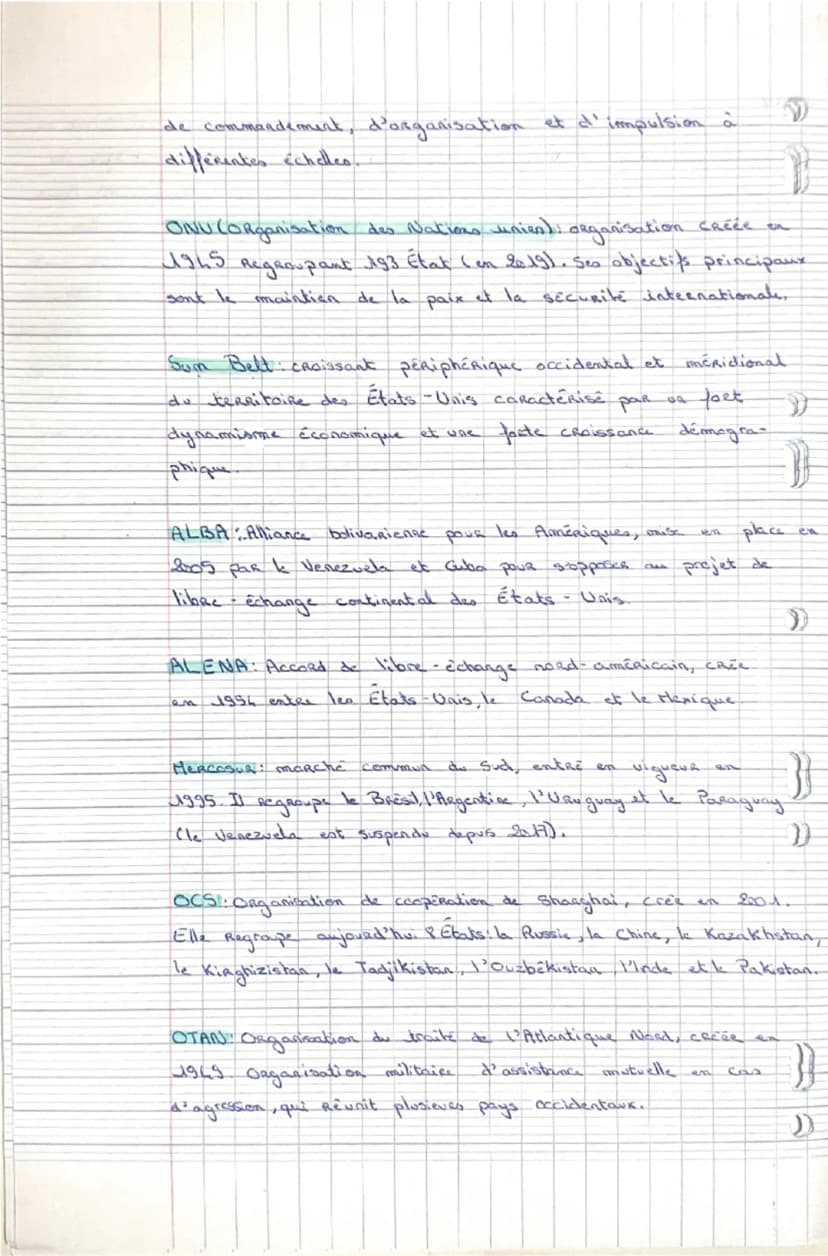 de commandement, d'organisation et d'impulsion à
différentes échelles.
ONU (Organisation des Nations unies): organisation créée en
1945 regroupant 193 État (en 2019). Ses objectifs principaux
sont le maintien de la paix et la sécurité internationale.
Sum Belt: croissant périphérique occidental et méridional
du territoire des États-Unis caractérisé par un fort
dynamisme économique et une forte croissance démogra-
phique.
ALBA: Alliance bolivarienne pour les Amériques, mise en place en
2005 par le Venezuela et Cuba pour s'opposer au projet de
libre-échange continental des États-Unis.
ALENA: Accord de libre-échange nord-américain, crée
en 1994 entre les États-Unis, le Canada et le Mexique.
Mercosur: marché commun du Sud, entré en vigueur en
1995. Il regroupe le Brésil, l'Argentine, l'Uruguay et le Paraguay
(le Venezuela est suspendu depuis 2017).
OCS: Organisation de coopération de Shanghai, crée en 2001.
Elle regroupe aujourd'hui 8 États: la Russie, la Chine, le Kazakhstan,
le Kirghizistan, le Tadjikistan, l'Ouzbékistan, l'Inde et le Pakistan.
OTAN: Organisation du traité de l'Atlantique Nord, créée en
1949. Organisation militaire d'assistance mutuelle en cas
d'agression, qui réunit plusieurs pays occidentaux.